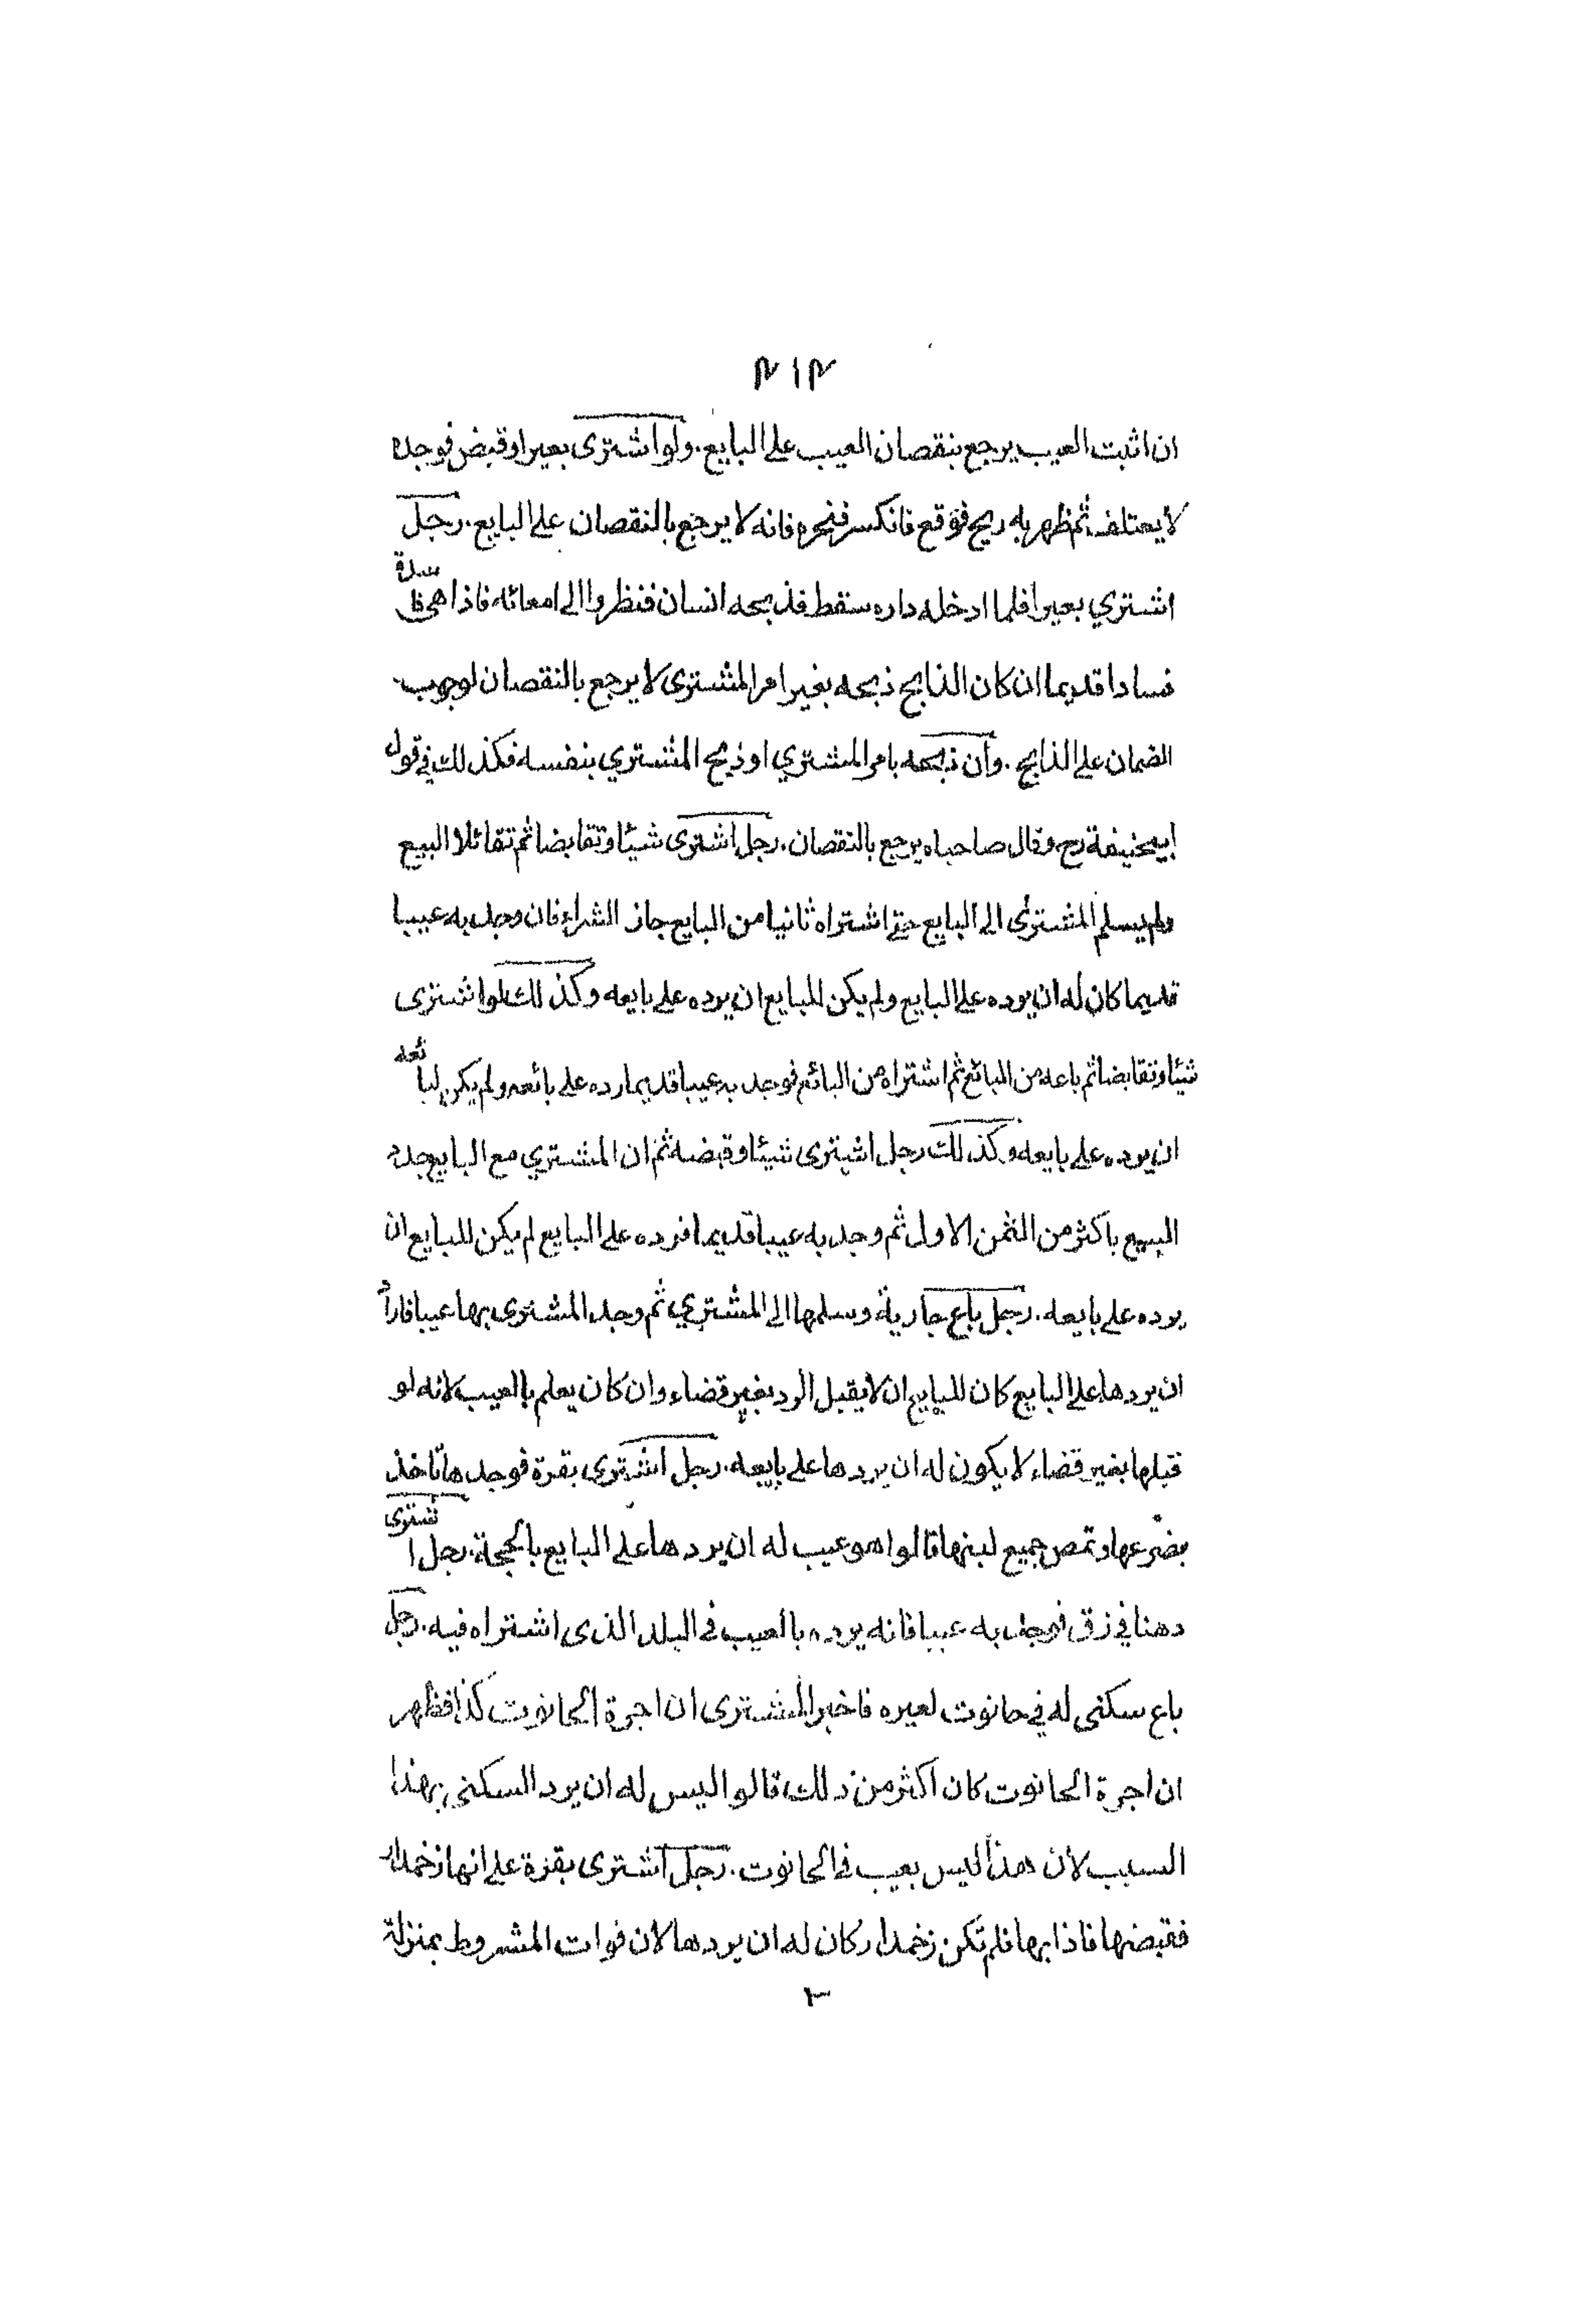 ٢١٢
ان اثبت العيب يرجع بنقصان العيب على البايع. ولو اشترى بعيرا وقبض فوجده
لا يعتلف ثم ظهر به ريح فوقع فانكسر فنحره فانه لا يرجع بالنقصان على البايع. رجل
اشتري بعيرا فلما ادخله داره سقط فذبحه انسان فنظروا الى امعائه فاذا هي فاسدة
فسادا قديما ان كان الذابح ذبحه بغير امر المشترى لا يرجع بالنقصان لوجوب
الضمان على الذابح. وأن ذبحه بامر المشتري او ذبح المشتري بنفسه فكذلك في قول
ابيحنيفة رح وقال صاحباه يرجع بالنقصان. رجل اشترى شيئا وتقابضا ثم تقائلا البيع
ولم يسلم المشترى الى البايع حتى اشتراه ثانيا من البايع جاز الشراء فان وجد به عيبا
قديما كان له ان يرده على البايع ولم يكن للبايع ان يرده على بايعه وكذلك لو اشترى
شيئا وتقابضا ثم باعه من البائع ثم اشتراه من البائع فوجد به عيبا قديما رده على بائعه ولم يكن لبائعه
ان يرده على بايعه وكذلك رجل اشترى شيئا وقبضه ثم ان المشتري مع البايع جدد
البيع باكثر من الثمن الاول ثم وجد به عيبا قديما فرده على البايع لم يكن للبايع ان
يرده على بايعه. رجل باع جارية وسلمها الى المشتري ثم وجد المشترى بها عيبا فاراد
ان يردها على البايع كان للبايع ان لا يقبل الرد بغير قضاء وان كان يعلم بالعيب لانه لو
قبلها بغير قضاء لا يكون له ان يردها على بايعه. رجل اشترى بقرة فوجدها تاخذ
بضرعها وتمص جميع لبنها قالوا هو عيب له ان يردها على البايع بالحجة. رجل اشترى
دهنا في زق فوجد به عيبا فانه يرده بالعيب في البلد الذى اشتراه فيه. رجل
باع سكنى له في حانوت لغيره فاخبر المشترى ان اجرة الحانوت كذا فظهر
ان اجرة الحانوت كان اكثر من ذلك قالوا ليس له ان يرد السكنى بهذا
السبب لان هذا ليس بعيب في الحانوت. رجل اشترى بقرة على انها
فقبضها فاذا بها فلم تكن كان له ان يردها لان فوات المشروط بمنزلة